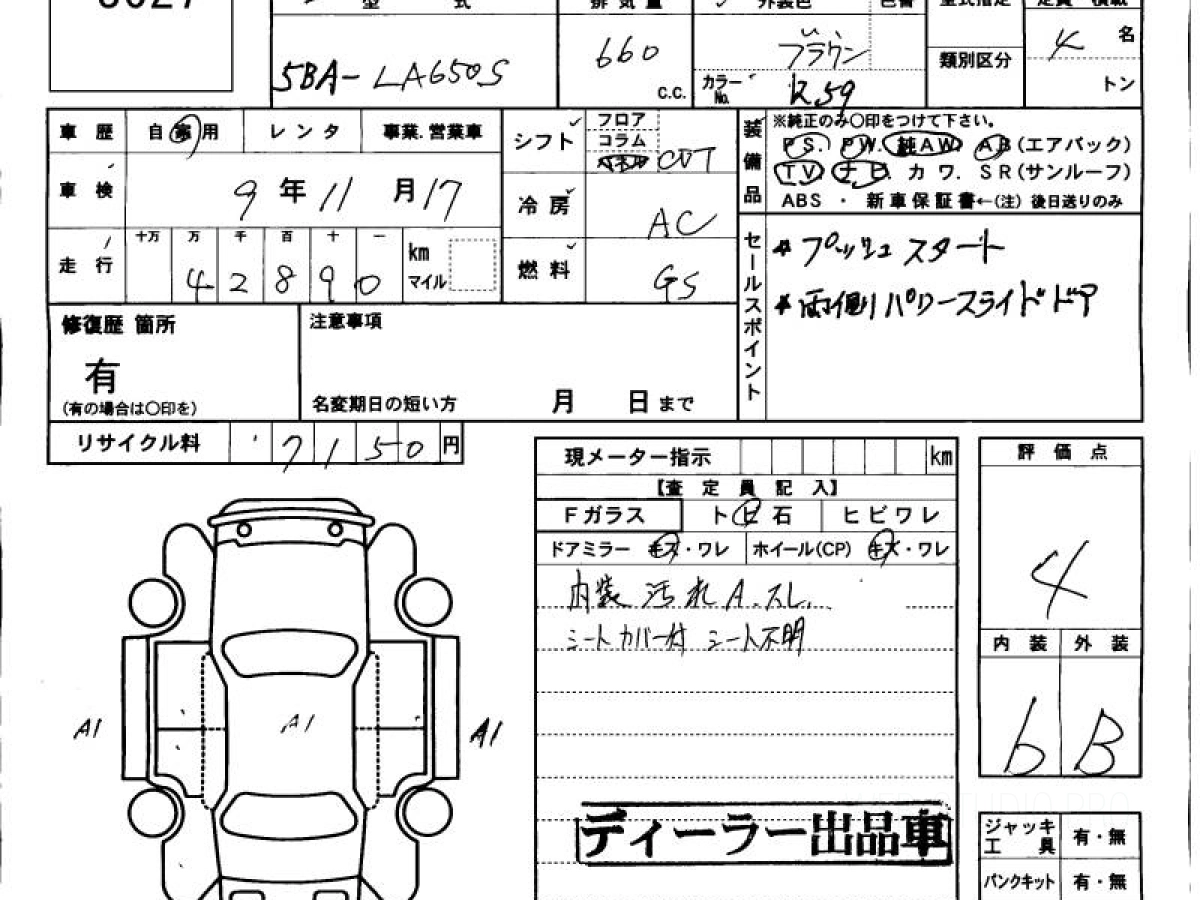 型 式
排 気 量
外装色
色番
型式指定
定員 積載
5BA-LA650S
660
c.c.
ブラウン
カラーNo.
R59
類別区分
4 名
トン
車 歴
自家用
レンタ
事業.営業車
シフト
フロア
コラム
CVT
装備品
※純正のみ〇印をつけて下さい。
PS. PW. 純AW. AB(エアバック)
TV ナビ. カワ. SR(サンルーフ)
ABS ・ 新車保証書←(注) 後日送りのみ
車 検
9 年 11 月 17
冷 房
AC
走 行
十万 万 千 百 十 一
4 2 8 9 0
km
マイル
燃 料
GS
セールスポイント
* プッシュスタート
* 両側パワースライドドア
修復歴 箇所
有
(有の場合は〇印を)
注意事項
名変期日の短い方 月 日まで
リサイクル料 7150 円
現メーター指示 km
【査 定 員 記 入】
Fガラス
トビ石
ヒビワレ
ドアミラー キズ・ワレ
ホイール(CP) キズ・ワレ
内装 汚れ A.スレ.
シートカバー付 シート不明
評 価 点
4
内 装
外 装
b
B
A1
A1
A1
ディーラー出品車
ジャッキ工具 有・無
パンクキット 有・無